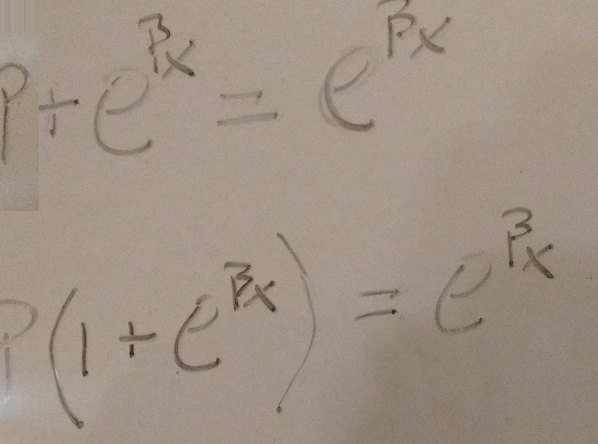 P + e^{βx} = e^{βx}
P(1 + e^{βx}) = e^{βx}